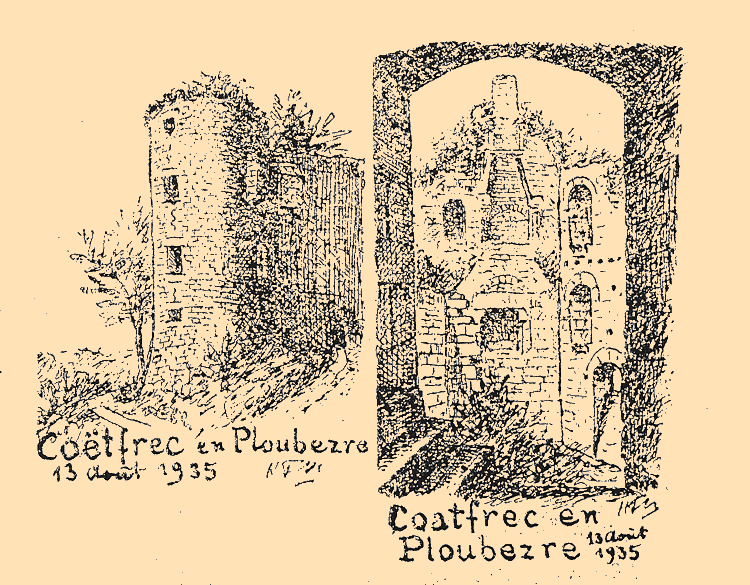 Coëtfrec en Ploubezre
13 août 1935
Coatfrec en
Ploubezre 13 août
1935